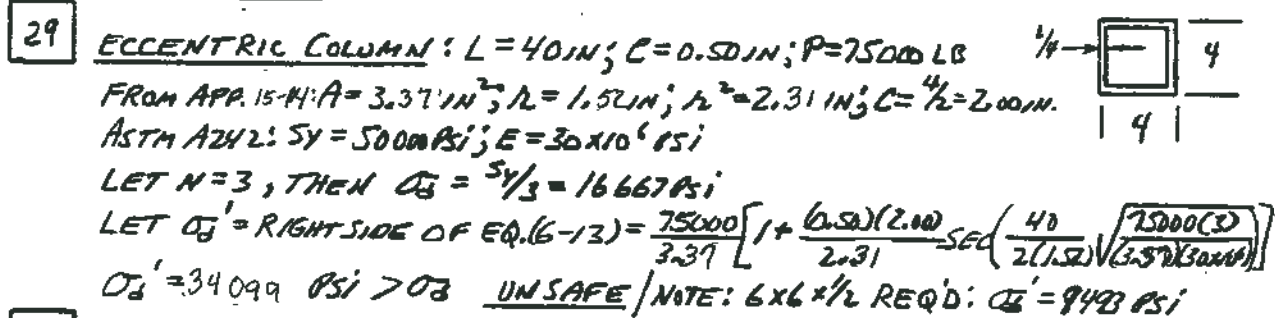 29
ECCENTRIC COLUMN: L = 40 IN; e = 0.50 IN; P = 75000 LB
1/4 → 4
FROM APP. 15-14: A = 3.37 IN²; r = 1.52 IN; r² = 2.31 IN; C = 4/2 = 2.00 IN.
4
ASTM A242: Sy = 50000 PSi; E = 30 x 10⁶ PSi
LET N = 3, THEN σd = Sy/3 = 16667 PSi
LET σd' = RIGHT SIDE OF EQ. (6-13) = 75000/3.37 [1 + (0.50)(2.00)/2.31 SEC(40/2(1.52) √(75000(3)/(3.37)(30x10⁶)))]
σd' = 34099 PSi > σd UNSAFE / NOTE: 6x6x1/2 REQ'D: σd' = 9493 PSi